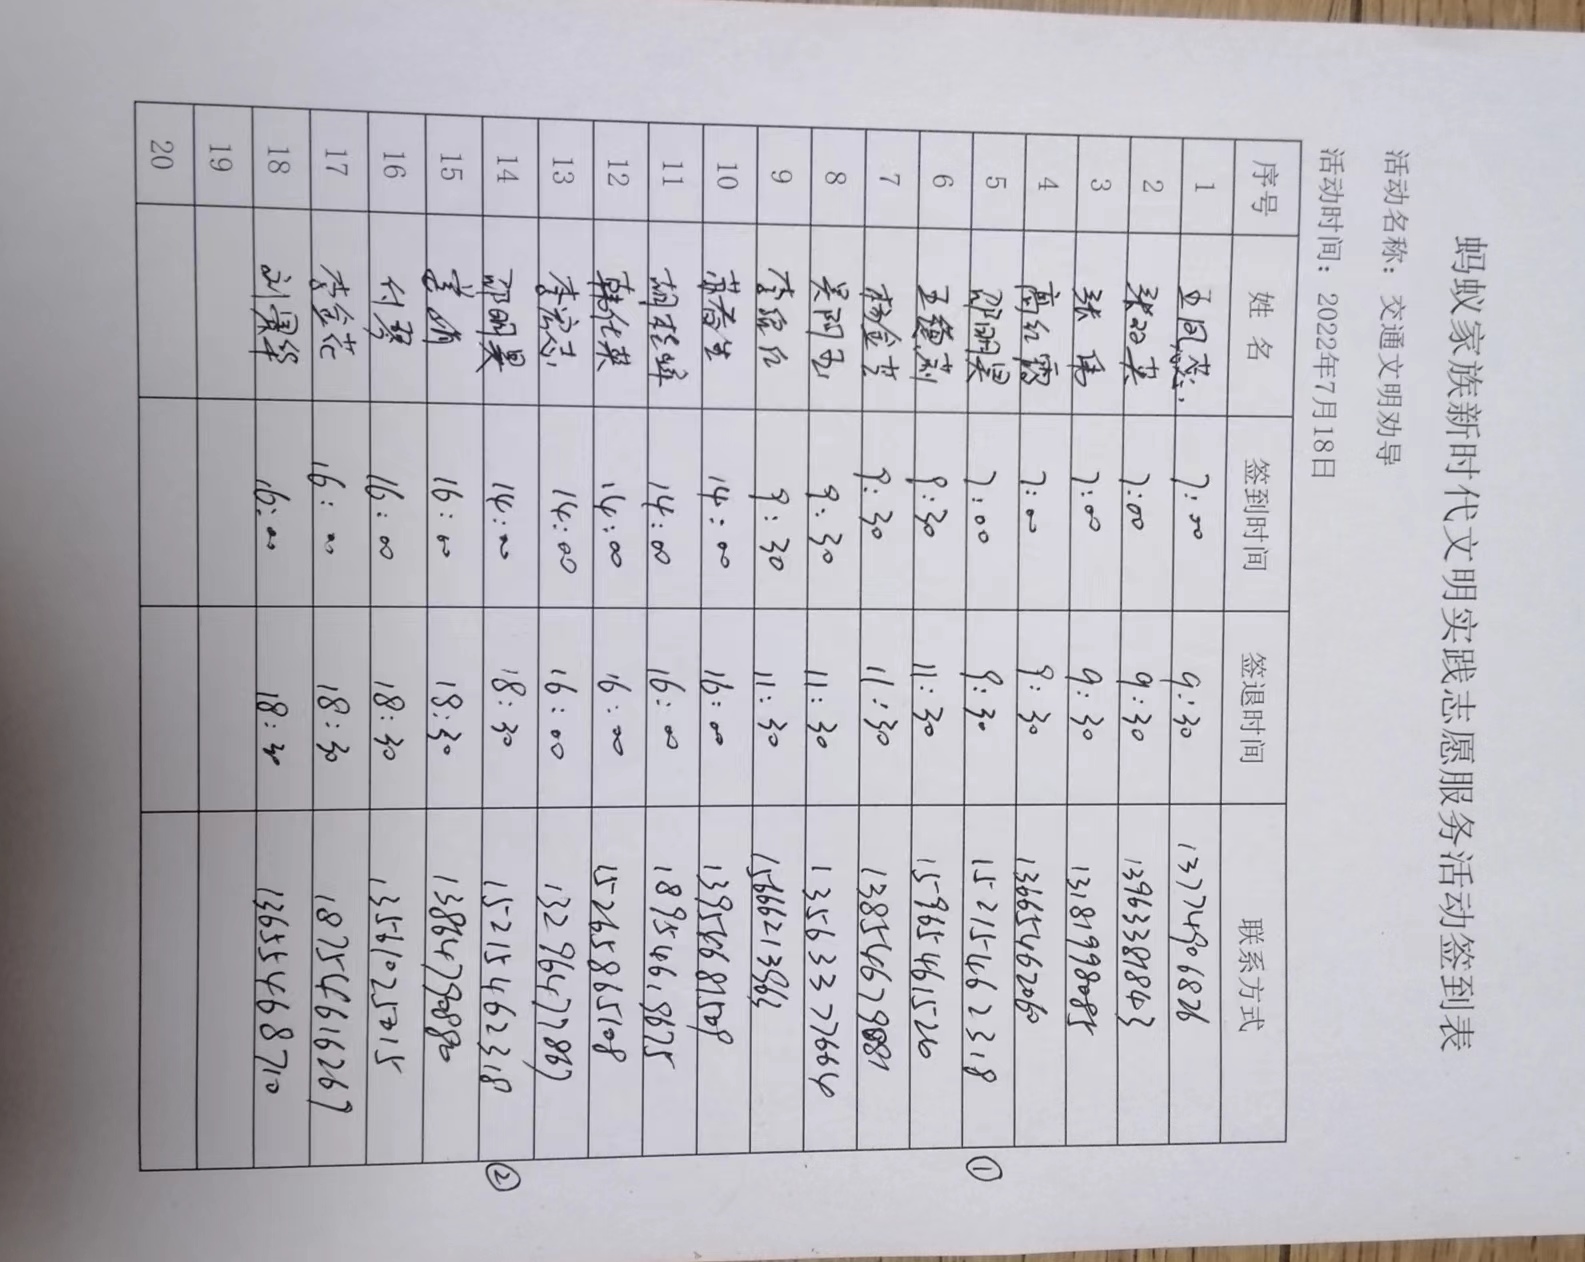 蚂蚁家族新时代文明实践志愿服务活动签到表
活动名称：交通文明劝导
活动时间：2022年7月18日
序号 姓名 签到时间 签退时间 联系方式
1 王凤蕊 7:00 9:30 13774906826
2 张汉英 7:00 9:30 13963381843
3 张勇 7:00 9:30 13181998085
4 高红霞 7:00 9:30 13665462060
5 邵明昊 7:00 9:30 15215462318 ①
6 王德利 9:30 11:30 15965461520
7 杨金芳 9:30 11:30
8 吴丽玉 9:30 11:30 13563377664
9 李绍红 9:30 11:30 15666213963
10 苏春生 14:00 16:00
11 胡桂峰 14:00 16:00 18954618675
12 韩化英 14:00 16:00 15265865108
13 李宏志 14:00 16:00 13296477867
14 邵明昊 14:00 18:30 15215462318 ②
15 16:00 18:30
16 付琴 16:00 18:30 13561025215
17 李金花 16:00 18:30 18754616267
18 刘景华 16:00 18:30 13655468710
19
20